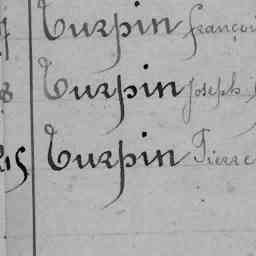 Turpin françoi
8 Turpin Joseph
215 Turpin Pierre